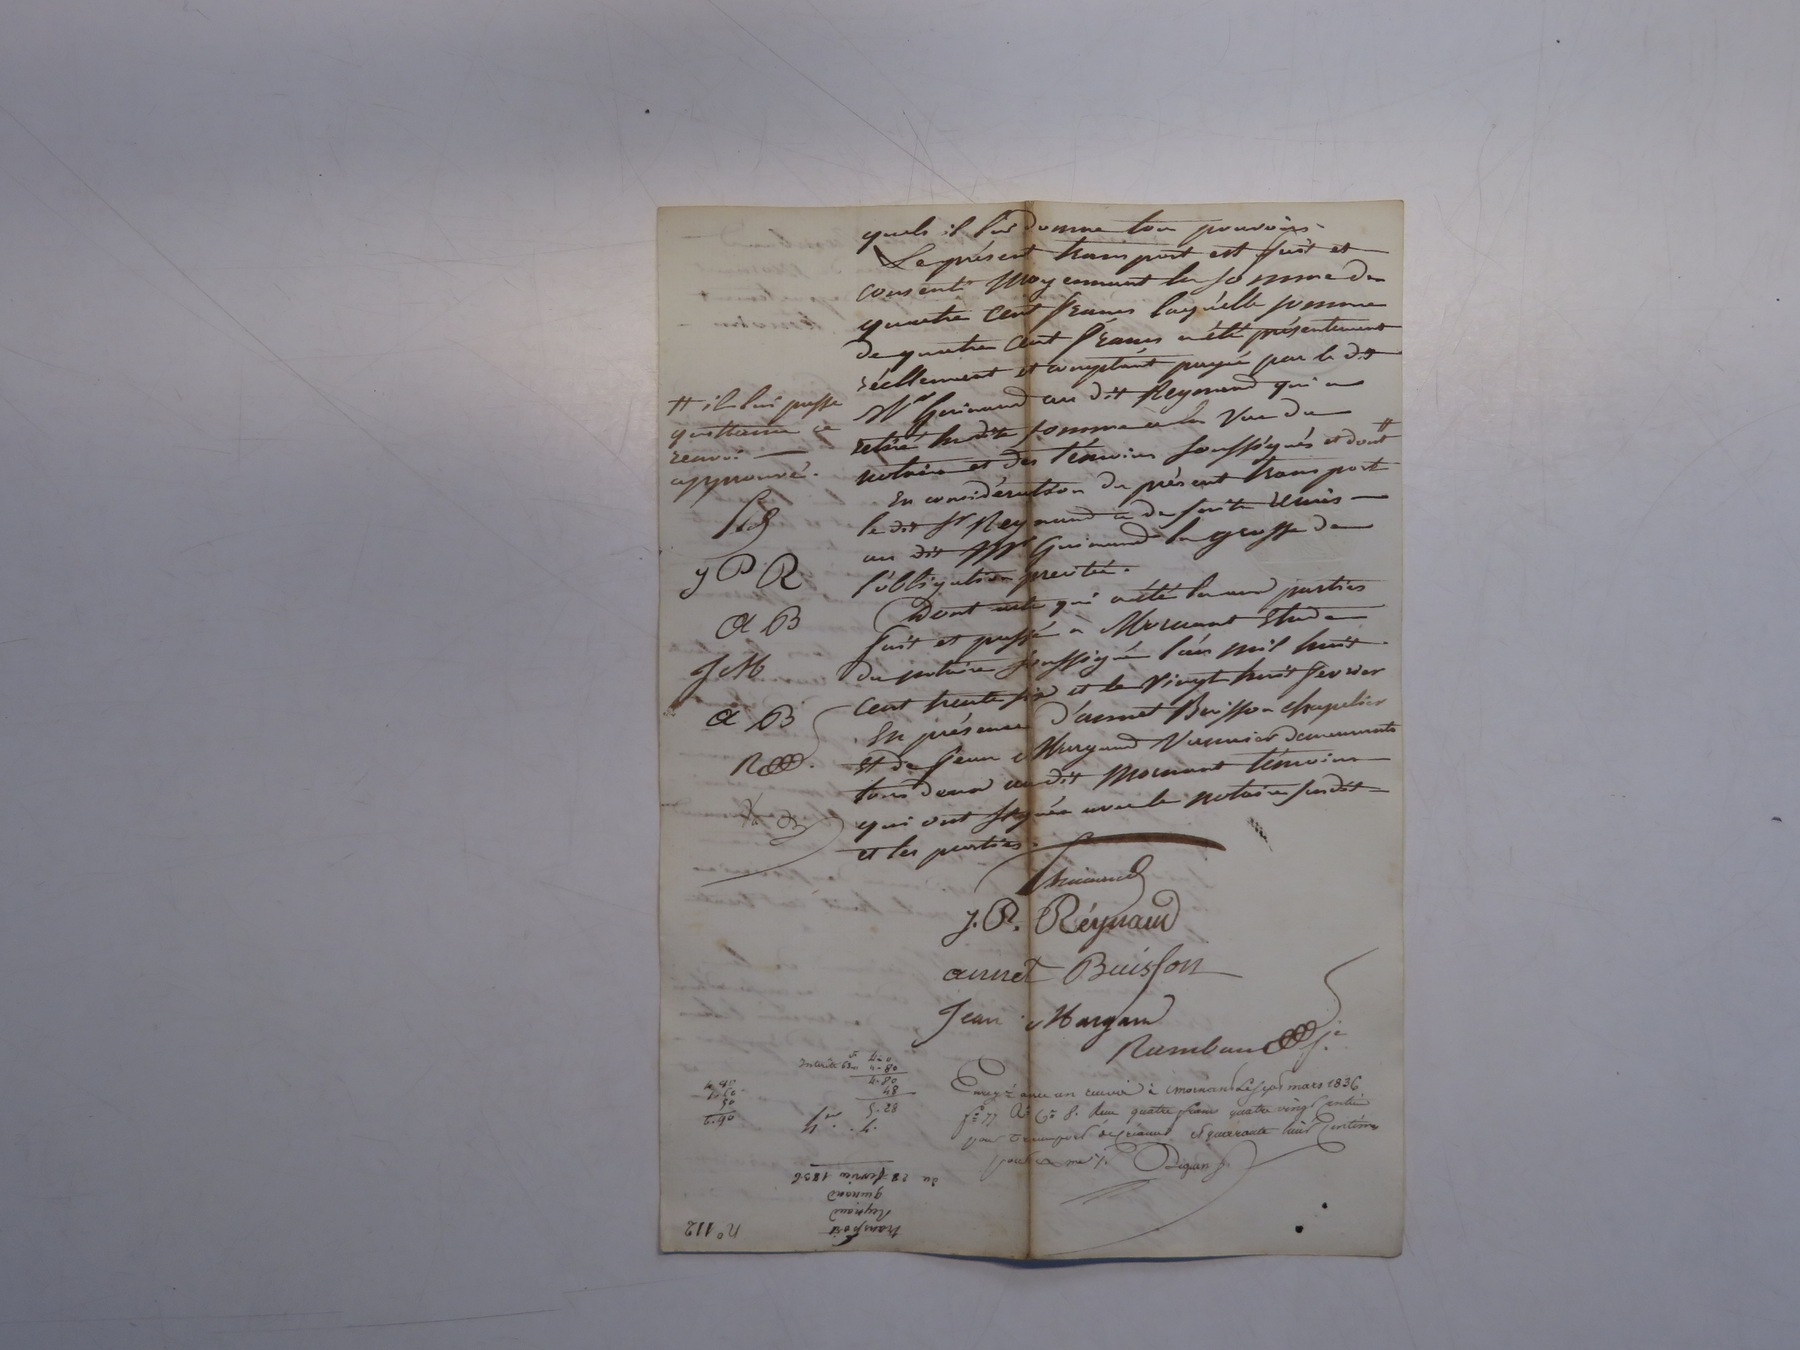 quels il lui donne tou pouvoirs.
Le présent transport est fait et
consenti Moyennant la somme de
quatre cent francs laquelle somme
de quatre cent francs a été présentement
réellement et comptant payée par le dit
Mr Guinand au dit Reynaud qui a
retiré ladite somme à la Vue du
notaire et des témoins soussignés et dont #
En considération du présent transport
le dit Sr Reynaud a de suite remis
au dit Mr Guinand la grosse de
l'obligation précitée.
Dont acte qui a été lu aux parties
fait et passé à Mornant Etude
du notaire soussigné l'an mil huit
cent trente six et le vingt huit fevrier
En présence d'annet Buisson chapelier
et de Jean Margand demeurants
tous deux au dit Mornant témoins
qui ont signés avec le notaire susdit
et les parties.
# il lui passe
quittance ce
renvoi
approuvé.
J P R
A B
J M
A B
Guinand
J. P. Réynaud
annet Buisson
Jean Margand
Rambaud
Enregé avec un renvoi à Mornant le mars 1836
fo 77 Ro Ce 8. Reçu quatre francs quatre vingt centimes
pour transport de créance et quarante huit centimes
pour
4-80
48
5-28
nº 112
transport
Reynaud
guinand
du 28 fevrier 1836